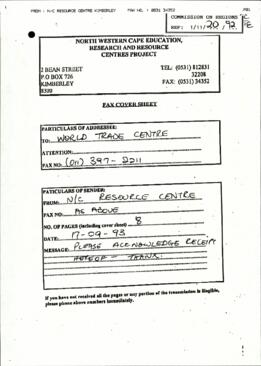 FROM : N/C RESOURCE CENTRE KIMBERLEY FAX NO. : 0531 34352
COMMISSION ON REGIONS
REF: 1/11/20/92
NORTH WESTERN CAPE EDUCATION,
RESEARCH AND RESOURCE
CENTRES PROJECT
2 BEAN STREET
P.O BOX 726
KIMBERLEY
8300
TEL: (0531) 812831
32208
FAX: (0531) 34352
FAX COVER SHEET
PARTICULARS OF ADDRESSEE:
TO: WORLD TRADE CENTRE
ATTENTION:
FAX NO: (011) 397-2211
PATICULARS OF SENDER:
FROM: N/C RESOURCE CENTRE
FAX NO: AS ABOVE
NO. OF PAGES (including cover sheet) 8
DATE: 17-09-93
MESSAGE: PLEASE ACKNOWLEDGE RECEIPT
HEREOF - THANX.
If you have not received all the pages or any portion of the transmission is illegible,
please phone above numbers immediately.